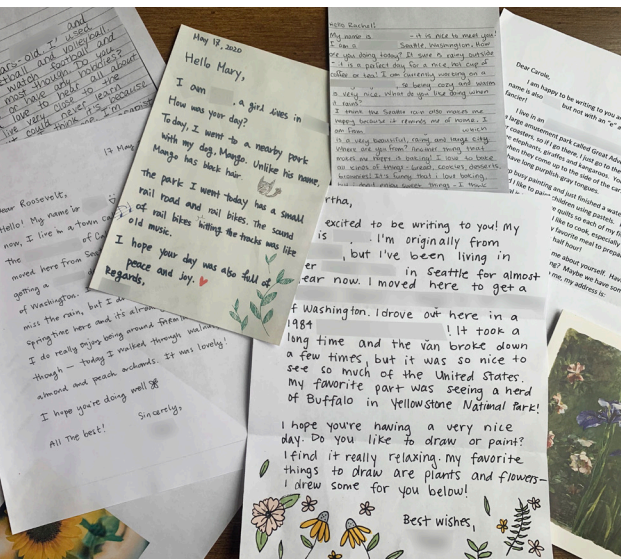 and
ears old. I used
tball and volleyball.
watch football and
most though. Do you
have any hobbies?
hear all about
live very close to the
could never learn
because
think
May 17, 2020
Hello Mary,
I am , a girl lives in
How was your day?
Today, I went to a nearby park
with my dog, Mango. Unlike his name,
Mango has black hair.
The park I went today has a small
rail road and rail bikes. The sound
of rail bikes hitting the tracks was like
old music.
I hope your day was also full of
peace and joy.
Regards,
Hello Rachel!
My name is - it is nice to meet you!
I am a Seattle, Washington. How
are you doing today? It sure is rainy outside
- it is a perfect day for a nice, hot cup of
coffee or tea! I am currently working on a
, so being cozy and warm
is very nice. What do you like doing when
it rains?
I think the Seattle rain also makes me
happy because it reminds me of home. I
am from which
is a very beautiful, rainy, and large city.
Where are you from? Another thing that
makes me happy is baking! I love to bake
all kinds of things - bread, cookies, desserts,
brownies! It's funny that I love baking
but I don't enjoy sweet things - I think
Dear Carole,
I am happy to be writing to you a
name is also but not with an "e" a
fancier!
I live in
large amusement park called Great Adv
coasters, so if I go there, I just go to th
elephants, giraffes and kangaroos. Ye
when they come up to the side of the
long purplish gray tongues.
busy painting and just finished a wate
I like to paint using pastels.
quilts so each of my
like to cook, especially
favorite meal to prepa
half hour!
me about yourself. Hav
ng? Maybe we have som
me, my address is:
17 May
Dear Roosevelt,
Hello! My name is
now, I live in a town ca
the of Ca
moved here from Sea
getting a
of Washington.
miss the rain, but I do
Springtime here and it's alrea
I do really enjoy being around farm
though - today I walked through walnut
almond and peach orchards. It was lovely!
I hope you're doing well
Sincerely,
All the best!
rtha,
excited to be writing to you! My
is . I'm originally from
, but I've been living in
er in Seattle for almost
ear now. I moved here to get a
of Washington. I drove out here in a
1984 ! It took a
long time and the van broke down
a few times, but it was so nice to
see so much of the United States.
My favorite part was seeing a herd
of Buffalo in Yellowstone National Park!
I hope you're having a very nice
day. Do you like to draw or paint?
I find it really relaxing. My favorite
things to draw are plants and flowers-
I drew some for you below!
Best wishes,